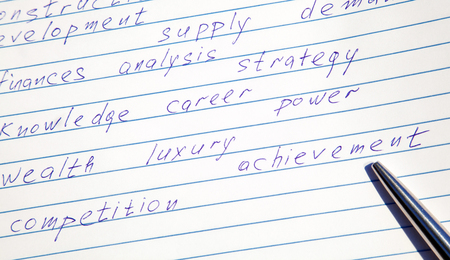 evelopment supply
finances analysis strategy
Knowledge career power
wealth luxury achievement
competition